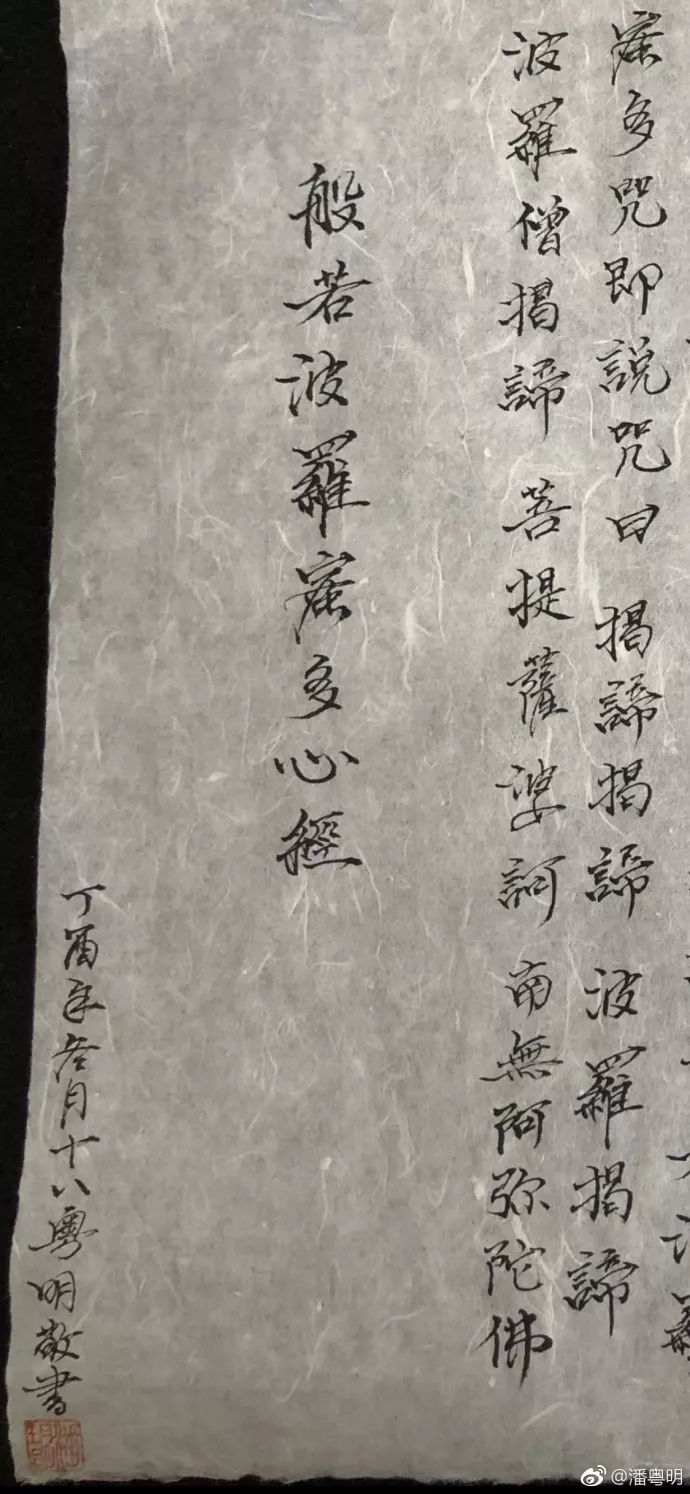 蜜多咒即說咒曰 揭諦揭諦 波羅揭諦
波羅僧揭諦 菩提薩婆訶 南無阿弥陀佛
般若波羅蜜多心經
丁酉年叁月十八粵明敬書
@潘粤明